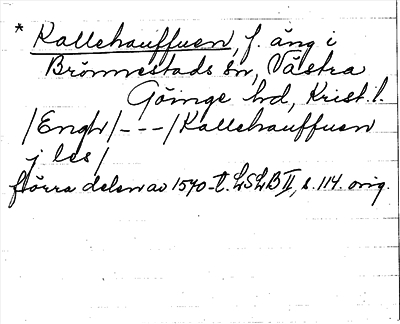 * Kallehauffuen, f. äng i
Brönnestads sn, Västra
Göinge hd, Krist. l.
/Engh/---/Kallehauffuen
j les/
förra delen av 1570-t. LSLB II, s. 114. orig.